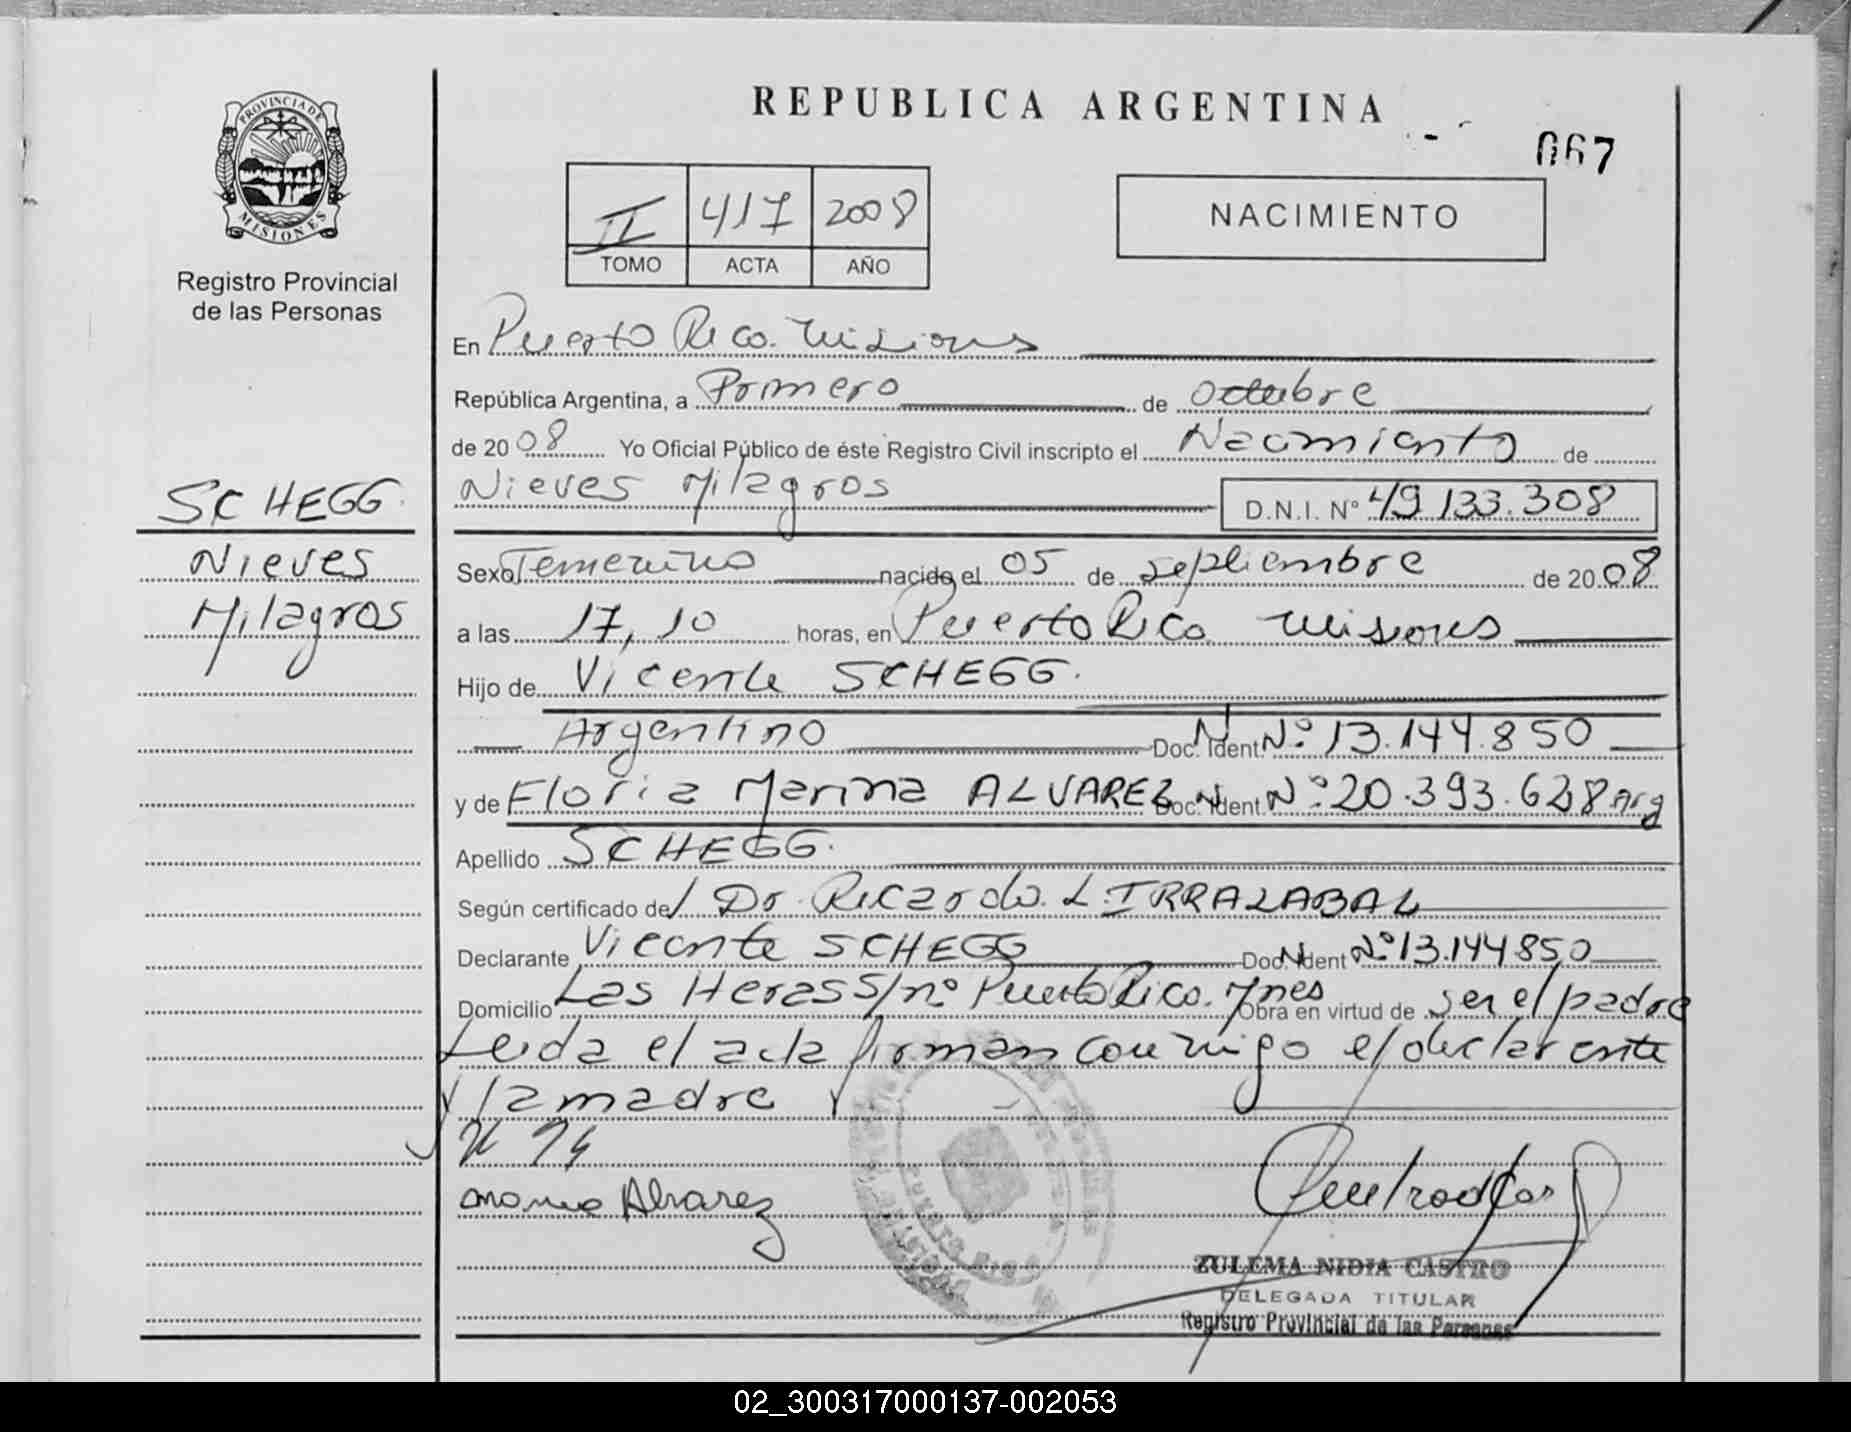 REPUBLICA ARGENTINA
067
PROVINCIA DE
MISIONES
Registro Provincial
de las Personas
II 417 2008
TOMO ACTA AÑO
NACIMIENTO
En Puerto Rico. Misiones
República Argentina, a Primero de Octubre
de 2008 Yo Oficial Público de éste Registro Civil inscripto el Nacimiento de
Nieves Milagros D.N.I. N° 49.133.308
SCHEGG.
Nieves
Milagros
Sexo Femenino nacido el 05 de septiembre de 2008
a las 17,10 horas, en Puerto Rico Misiones
Hijo de Vicente SCHEGG.
Argentino Doc. N Ident N° 13.144.850
y de Floria Marina ALVAREZ Doc. N Ident N° 20.393.628 Arg
Apellido SCHEGG.
Según certificado de / Dr. Ricardo L IRRALABAL
Declarante Vicente SCHEGG Doc. N Ident N° 13.144850
Domicilio Las Heras S/n° Puerto Rico. Mnes Obra en virtud de ser el padre
Leida el acta firman conmigo el declarante
y la madre
Alvarez
PUERTO RICO
ZULEMA NIDIA CASTRO
DELEGADA TITULAR
Registro Provincial de las Personas
02_300317000137-002053